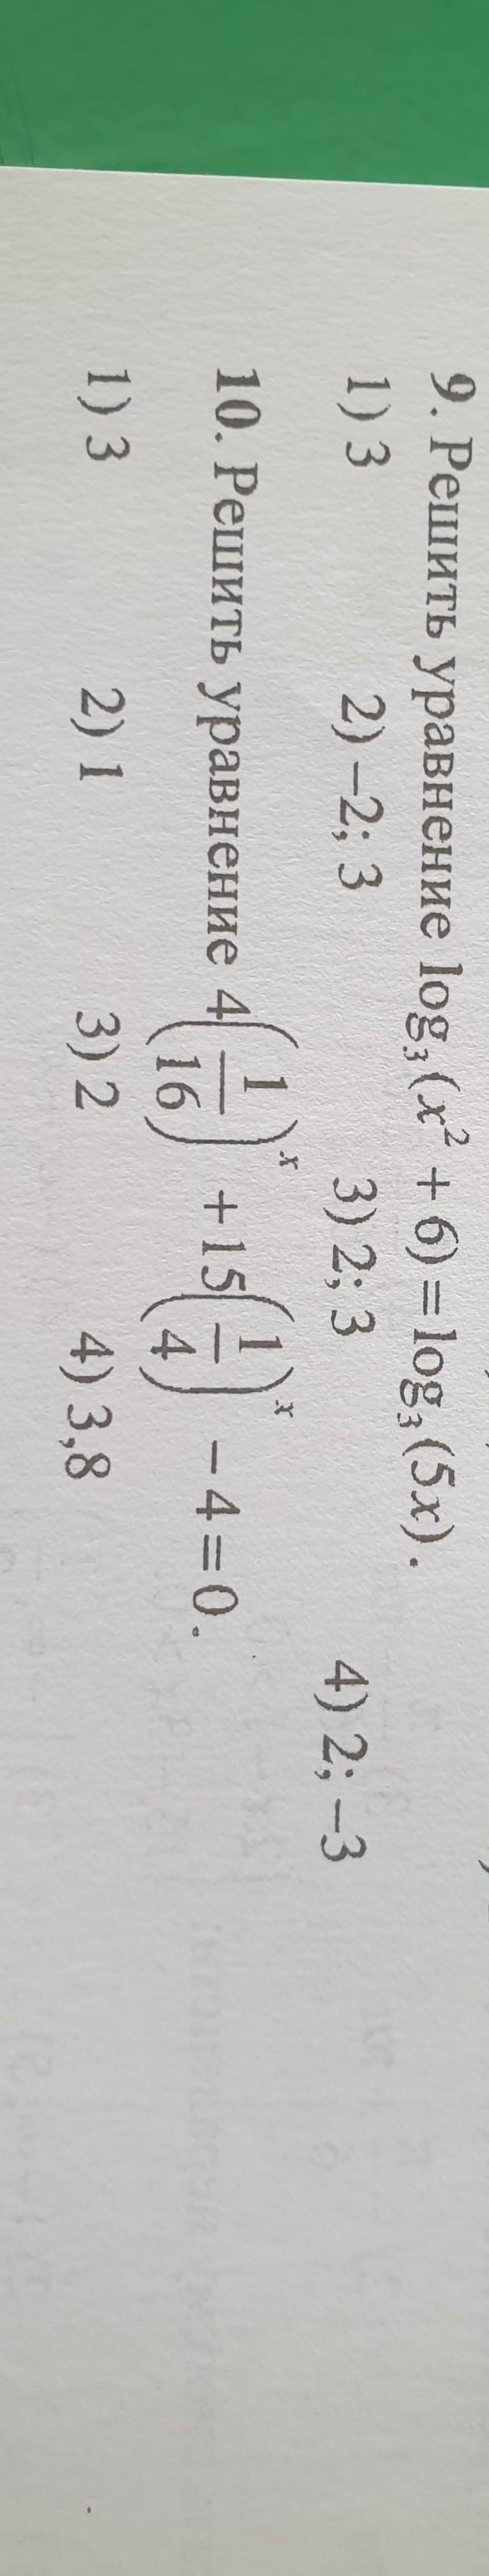 9. Решить уравнение log₃(x² + 6) = log₃(5x).
1) 3 2) –2; 3 3) 2; 3 4) 2; –3
10. Решить уравнение 4(1/16)ˣ + 15(1/4)ˣ – 4 = 0.
1) 3 2) 1 3) 2 4) 3,8